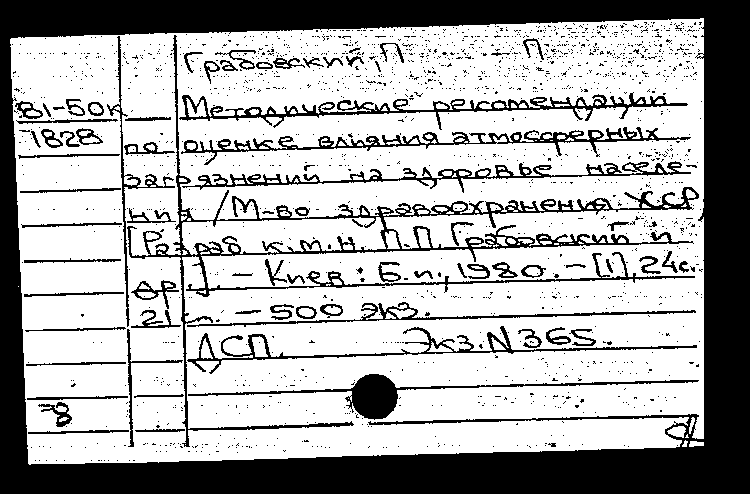 Грабовский, П П
81-50к Методические рекомендации
1828 по оценке влияния атмосферных
загрязнений на здоровье населе-
ния / М-во здравоохранения УССР,
[Разраб. к.м.н. П.П. Грабовский и
др.]. - Киев : Б.и., 1980. - [1], 24с.
21 см. - 500 экз.
ДСП. Экз. N 365.